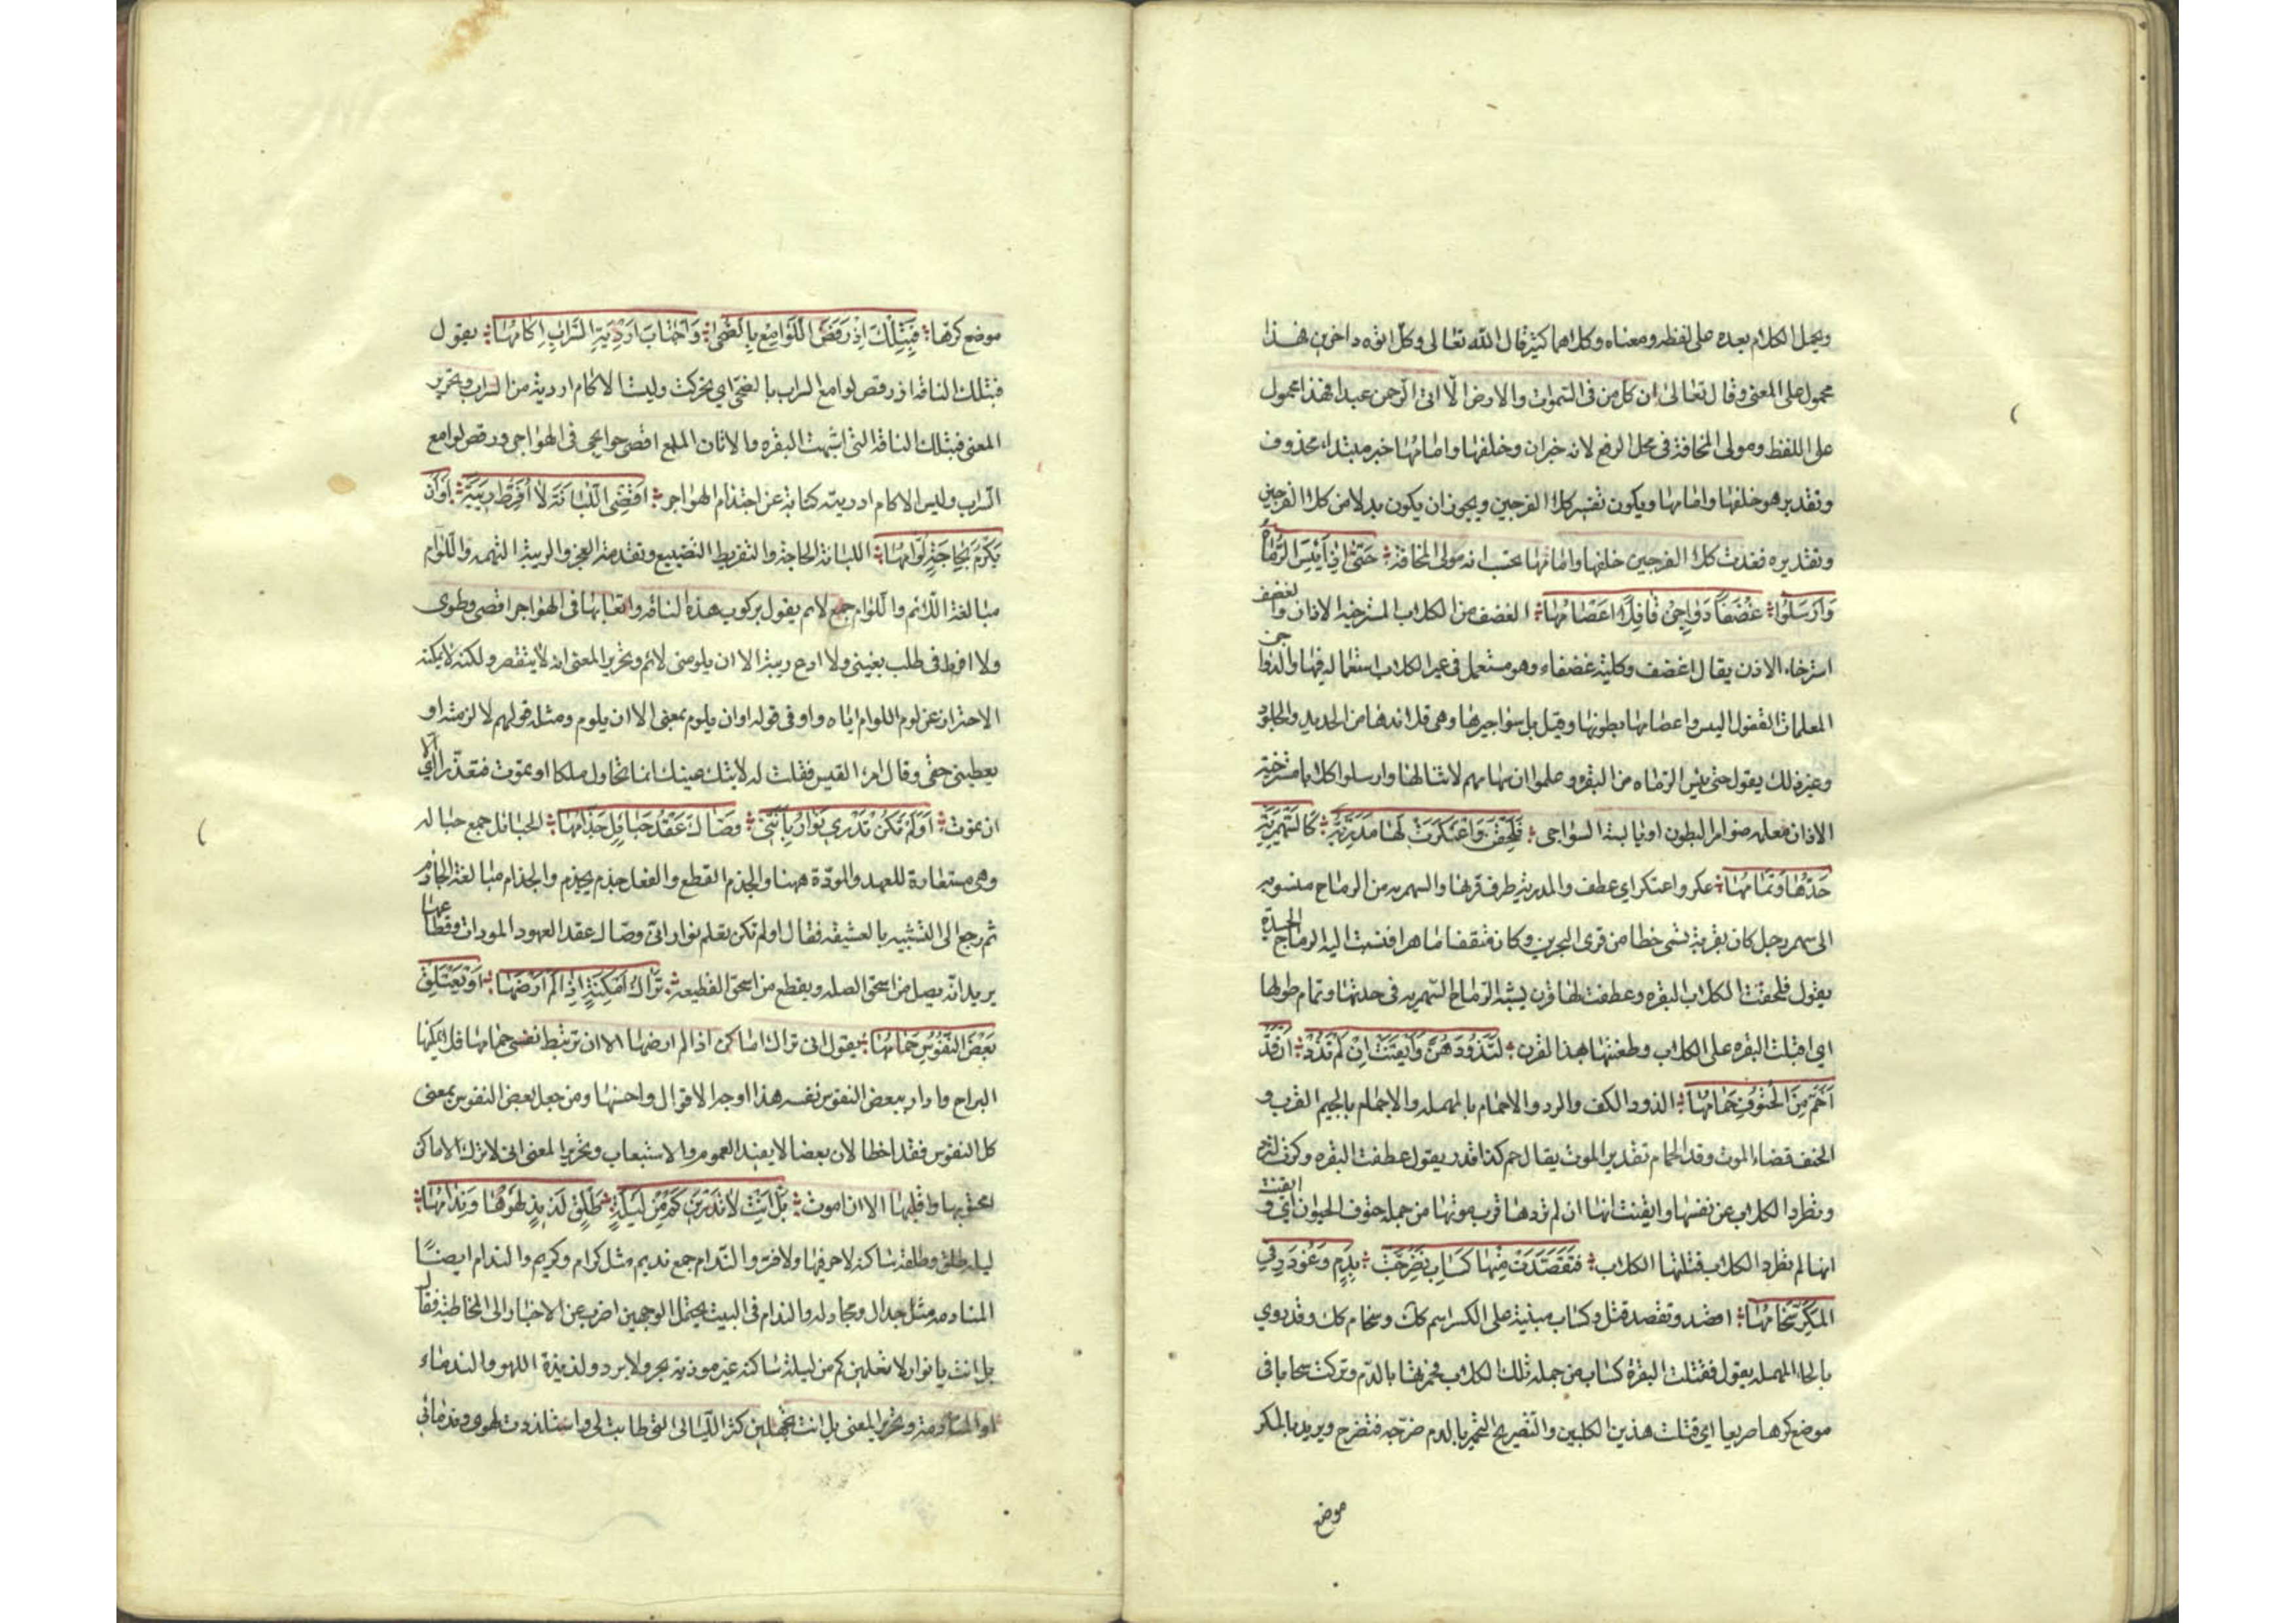 ويحمل الكلام بعده على لفظه ومعناه وكلاهما كثير قال الله تعالى وكل اتوه داخرين فهذا
محمول على المعنى وقال تعالى ان كل من فى السموات والارض الا اتى الرحمن عبدا فهذا محمول
على اللفظ ومولى المخافة فى محل الرفع لانه خبر ان وخلفها وامامها خبر مبتداء محذوف
وتقديره هو خلفها وامامها ويكون تفسير كلا الفرجين ويجوز ان يكون بدلا من كلا الفرجين
وتقديره فغدت كلا الفرجين خلفها وامامها تحسب انه مولى المخافة حَتّى اِذا يَئِسَ الرُّماةُ
وَاَرْسَلُوا غُضْفاً دَواجِنَ قافِلاً اَعْصامُها الغضف من الكلاب المسترخية الاذان والغضف
استرخاء الاذن يقال اغضف وكلبة غضفاء وهو مستعمل فى غير الكلاب استعماله فيها والدواجن
المعلمات القفول اليبس واعصامها بطونها وقيل بل سواجيرها وهى قلائدها من الحديد والجلود
وغير ذلك يقول حتى يئس الرماه من البقره وعلموا ان سهامهم لا تنالها وارسلوا كلابا مسترخية
الاذان معلمه ضوامر البطون او يابسة السواجى فَلَحِقْنَ وَاعْتَكَرَتْ لَها مَدَرِيَّةٌ كَالسَّمْهَرِيَّةِ
حَدُّها وَتَمامُها عكر واعتكر اي عطف والمدرية طرف قرنها والسمهريه من الرماح منسوبه
الى سمهر رجل كان بقرية تسمى خطا من قرى البحرين وكان مثقفا ماهرا فنسبت اليه الرماح الجيدة
يقول فلحقت الكلاب البقره وعطفت لها قرن يشبه الرماح السمهريه فى حدتها وتمام طولها
اي اقبلت البقره على الكلاب وطعنتها بهذا القرن لِتَذُودَهُنَّ وَاَيْقَنَتْ اِنْ لَمْ تَذُدْ اَنْ قَدْ
اَحَمَّ مِنَ الْحُتُوفِ حِمامُها الذود الكف والرد والاحمام بالمهمله والاجمام بالجيم القرب و
الحتف قضاء الموت وقد الحمام تقدير الموت يقال حم كذا قدر يقول عطفت البقره وكرت لترد
وتطرد الكلاب عن نفسها وايقنت انها ان لم تردها قرب موتها من جملة حتوف الحيوان اي وايقنت
انها لم تطرد الكلاب قتلتها الكلاب فَتَقَصَّدَتْ مِنْها كَسابِ فَضُرِّجَتْ بِدَمٍ وَغُودِرَ فِي
المَكَرِّ سُخامُها اقصد وتقصد قتل وكساب مبنية على الكسر اسم كلب وسخام كلب وقد روي
بالحاء المهمله يقول فقتلت البقرة كساب من جملة تلك الكلاب فحمرتها بالدم وتركت سحاما فى
موضع كرها صريعا اي قتلت هذين الكلبين والتضريج التحمير بالدم ضرجه فتضرج ويريد بالمكر
موضع
موضع كرها فَبِتِلْكَ اِذْ رَقَصَ اللَّوامِعُ بِالضُّحى وَاجْتابَ اَرْدِيَةَ السَّرابِ اِكامُها يقول
فبتلك الناقه اذ رقص لوامع السراب بالضحى اي تحركت ولبست الاكام اردية من السراب وتحرير
المعنى فبتلك الناقة التى اشبهت البقره والاتان الملمع اقضى حوائجى فى الهواجر ورقص لوامع
السراب ولبس الاكام ارديته كناية عن احتدام الهواجر اَقْضِى اللُّبانَةَ لا اُفَرِّطُ رِيبَةً اَوْ اَنْ
يَلُومَ بِحاجَةٍ لُوّامُها اللبانة الحاجة والتفريط التضييع وتقدمة العجز والريبة التهمه واللوام
مبالغة اللائم واللوام جمع لائم يقول بركوب هذه الناقه واتعابها فى الهواجر اقضى وطرى
ولا افرط فى طلب بغيتى ولا ادع ريبة الا ان يلومنى لائم وتحرير المعنى انه لا ينقصر ولكنه لا يمكنه
الاحتراز عن لوم اللوام اياه واو فى قوله او ان يلوم بمعنى الا ان يلوم ومثله قولهم لالزمنه او
يعطينى حقى وقال امرء القيس فقلت له لا تبك عينك انما نحاول ملكا او نموت فنعذرا اي الا
ان نموت اَوَلَمْ تَكُنْ تَدْرِي نَوارُ بِاَنَّنِي وَصّالُ عَقْدِ حَبائِلٍ جَذّامُها الحبائل جمع حباله
وهى مستعارة للعهد والمودة ههنا والجذم القطع والفعل جذم يجذم والجذام مبالغة الجاذم
ثم رجع الى التشبيه بالعشيقه فقال اولم تكن تعلم نوار انى وصال عقد العهود المودات وقطاعها
يريد انه يصل من استحق الصله ويقطع من استحق القطيعه تَرّاكُ اَمْكِنَةٍ اِذا لَمْ اَرْضَها اَوْ يَعْتَلِقْ
بَعْضَ النُّفُوسِ حِمامُها يقول انى تراك اماكن اذا لم ارضها الا ان يرتبط نفسى حمامها فلا يمكنها
البراح واراد ببعض النفوس نفسه هذا اوجه الاقوال واحسنها ومن جعل بعض النفوس بمعنى
كل النفوس فقد اخطا لان بعضا لا يفيد العموم والاستيعاب وتحرير المعنى انى لا اترك الاماكن
اجتويها واقليها الا ان اموت بَلْ اَنْتِ لا تَدْرِينَ كَمْ مِنْ لَيْلَةٍ طَلْقٍ لَذِيذٍ لَهْوُها وَنِدامُها
ليله طلق وطلقة ساكنه لا حر فيها ولا قر والندام جمع نديم مثل كرام وكريم والندام ايضاً
المنادمه مثل جدال ومجادله والندام فى البيت يحتمل الوجهين اضرب عن الاخبار الى المخاطبة فقال
بل انت يا نوار لا تعلمين كم من ليلة ساكنه غير موذية بحر ولا برد ولذيذة اللهو والندماء
او المنادمة وتحرير المعنى بل انت تجهلين كثرة الليالى التى طابت لى واستلذذت لهوى وندمائى